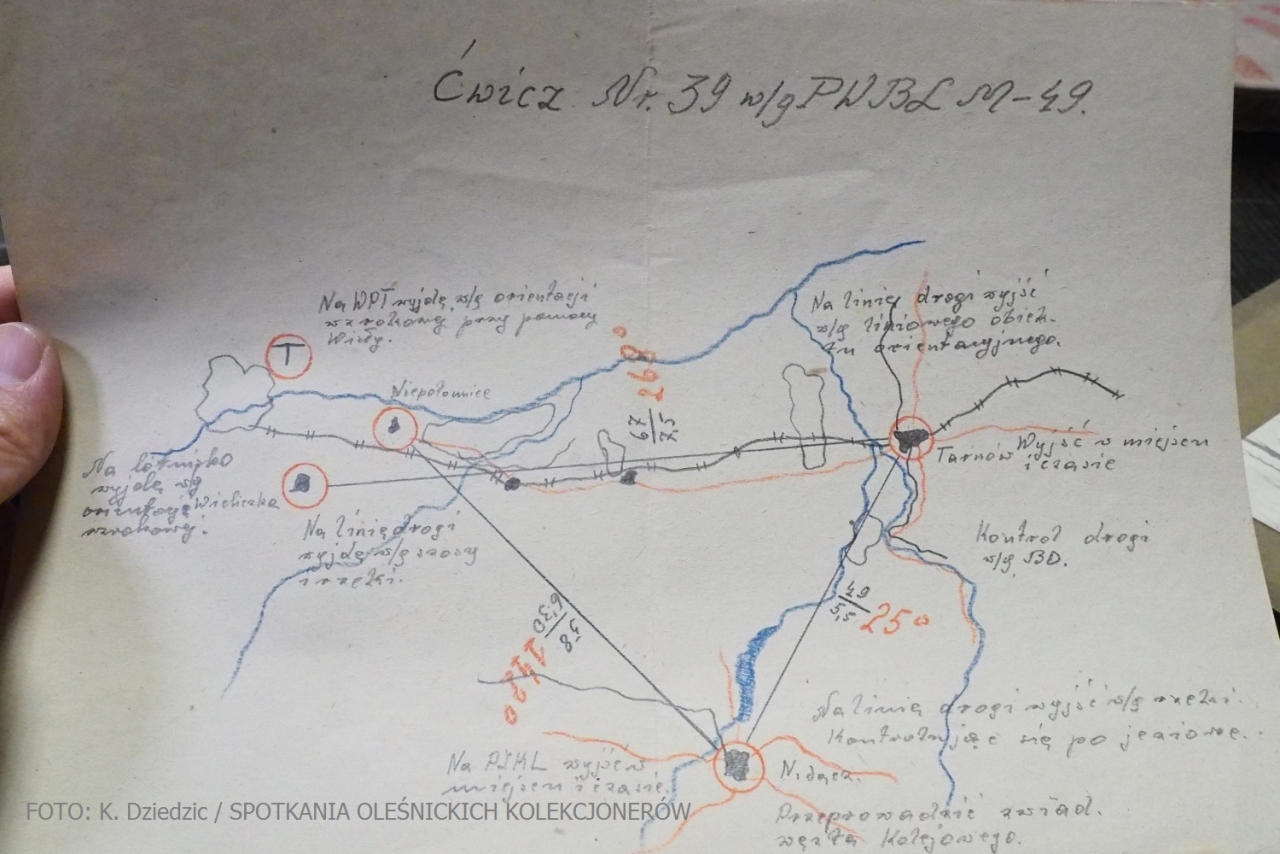 Ćwicz. Nr. 39 w/g PWBL M-49.
Na WPT wyjdę w/g orientacji
wzrokowej przy pomocy
Wisły.
T
Niepołomice
268°
67
7,5
Na linię drogi wyjść
w/g liniowego obiek-
tu orientacyjnego.
Tarnów
Wyjść w miejscu
i czasie
Na lotnisko
wyjdę w/g
orientacji
wzrokowej.
Wieliczka
Na linię drogi
wyjdę w/g szosy
i rzeki.
Kontrol drogi
w/g BD.
49
5,5
25°
58
6,30
142°
Na linię drogi wyjść w/g rzeki.
Kontrolując się po jeziorze.
Na PŚKL wyjść w
miejscu i czasie.
N. Sącz.
Przeprowadzić zwiad.
węzła Kolejowego.
FOTO: K. Dziedzic / SPOTKANIA OLEŚNICKICH KOLEKCJONERÓW